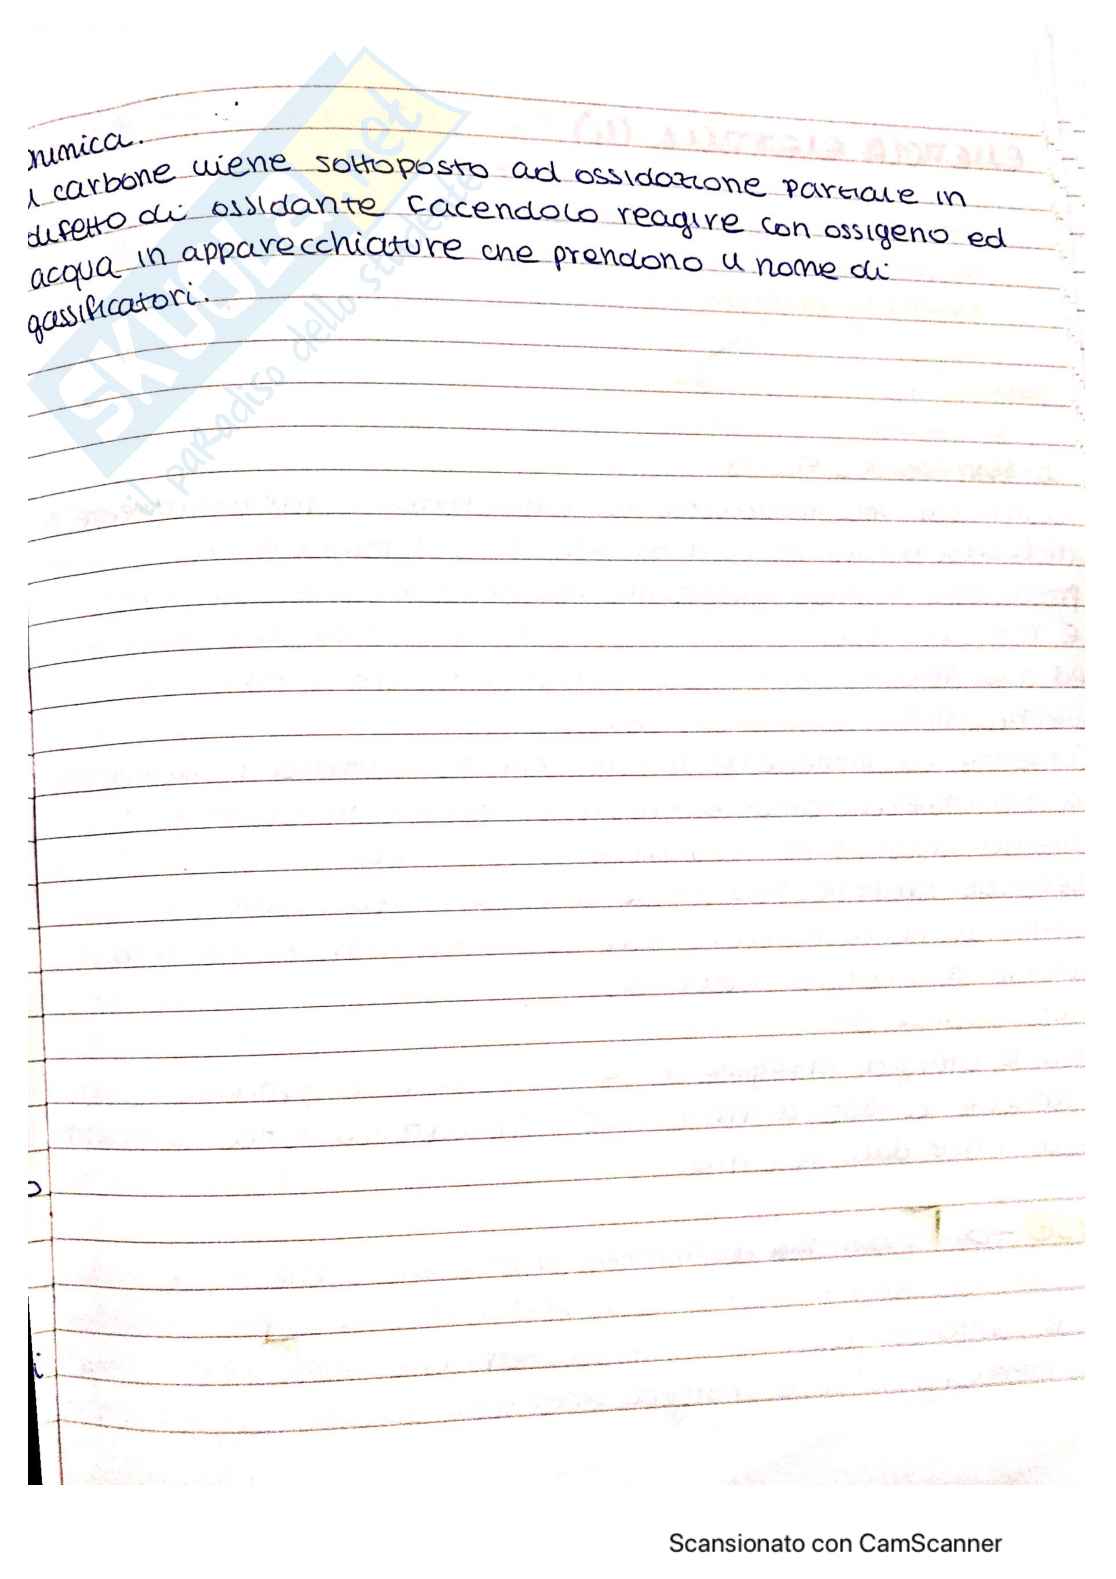 carbone viene sottoposto ad ossidazione parziale in
difetto di ossidante facendolo reagire con ossigeno ed
acqua in apparecchiature che prendono il nome di
gassificatori.
SKUOLA.net
il paradiso dello studente
Scansionato con CamScanner